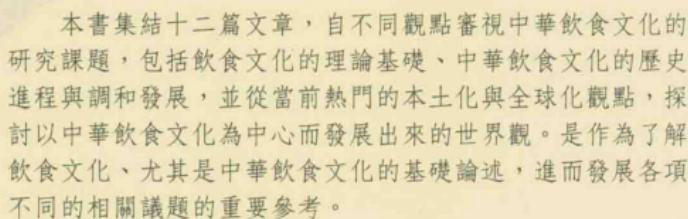 本書集結十二篇文章，自不同觀點審視中華飲食文化的
研究課題，包括飲食文化的理論基礎、中華飲食文化的歷史
進程與調和發展，並從當前熱門的本土化與全球化觀點，探
討以中華飲食文化為中心而發展出來的世界觀。是作為了解
飲食文化、尤其是中華飲食文化的基礎論述，進而發展各項
不同的相關議題的重要參考。